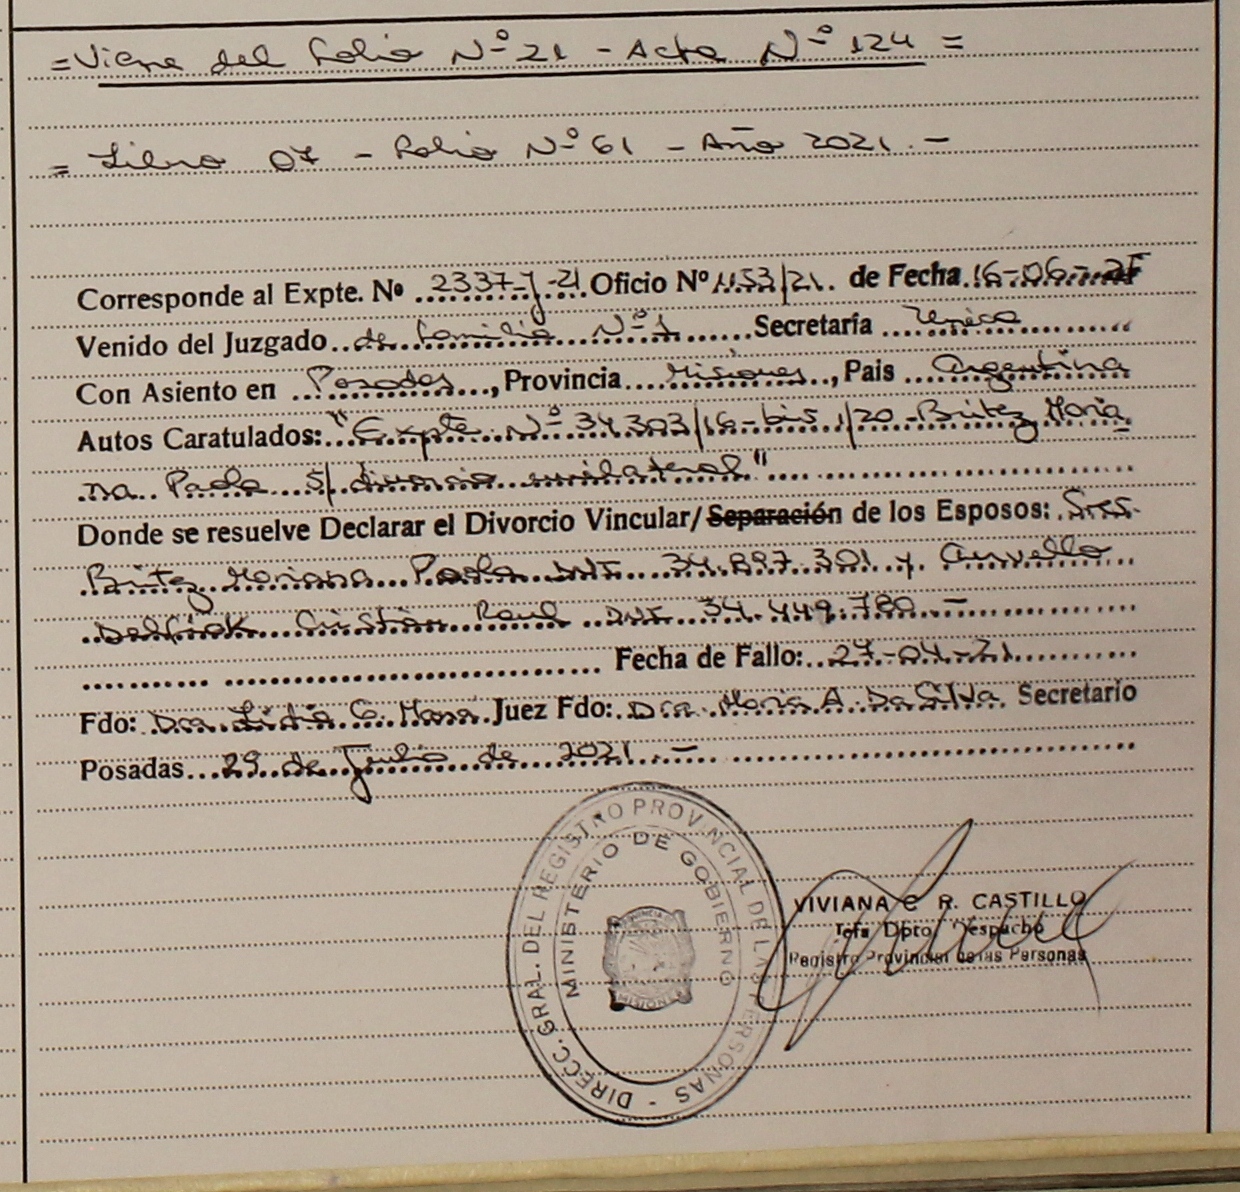 = Viene del Folio Nº 21 - Acta Nº 124 =
= Libro 07 - Folio Nº 61 - Año 2021.-
Corresponde al Expte. Nº 2337-J-21 Oficio Nº 1153/21. de Fecha 16-06-21
Venido del Juzgado de Familia Nº 1 Secretaría Unica
Con Asiento en Posadas, Provincia Misiones, Pais Argentina
Autos Caratulados: "Expte. Nº 34303/16-bis 1/20 Britez Maria
na Paola S/ divorcio unilateral"
Donde se resuelve Declarar el Divorcio Vincular/Separación de los Esposos: Sres.
Britez Mariana Paola DNI 34.897.301 y
Cristian Raul DNI 34.449.780.-
Fecha de Fallo: 27-04-21
Fdo: Dra. Lidia G. Juez Fdo: Dra. Maria A. Da Silva Secretario
Posadas 29 de Julio de 2021.-
DIRECC. GRAL. DEL REGISTRO PROVINCIAL DE LAS PERSONAS
MINISTERIO DE GOBIERNO
PROVINCIA
MISIONES
VIVIANA C R. CASTILLO
Jefa Dpto. Despacho
Registro Provincial de las Personas